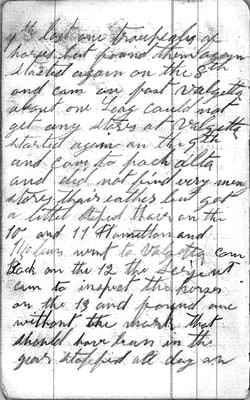 7th lost one troup
horses but found them again
started again on the 8th
and cam in past Valgetta
about one Leag could not
get any stores at Valgetta
started again on the 9th
and com to pack alta
and did not find very men
stores thair eather but got
a littel stopid thair on the
10th and 11 Hamilton and
went to Valgetta cam
back on the 12 the Sergent
cam to inspect the horses
on the 13 and found one
without the mark that
should have been in the
stopped all day on